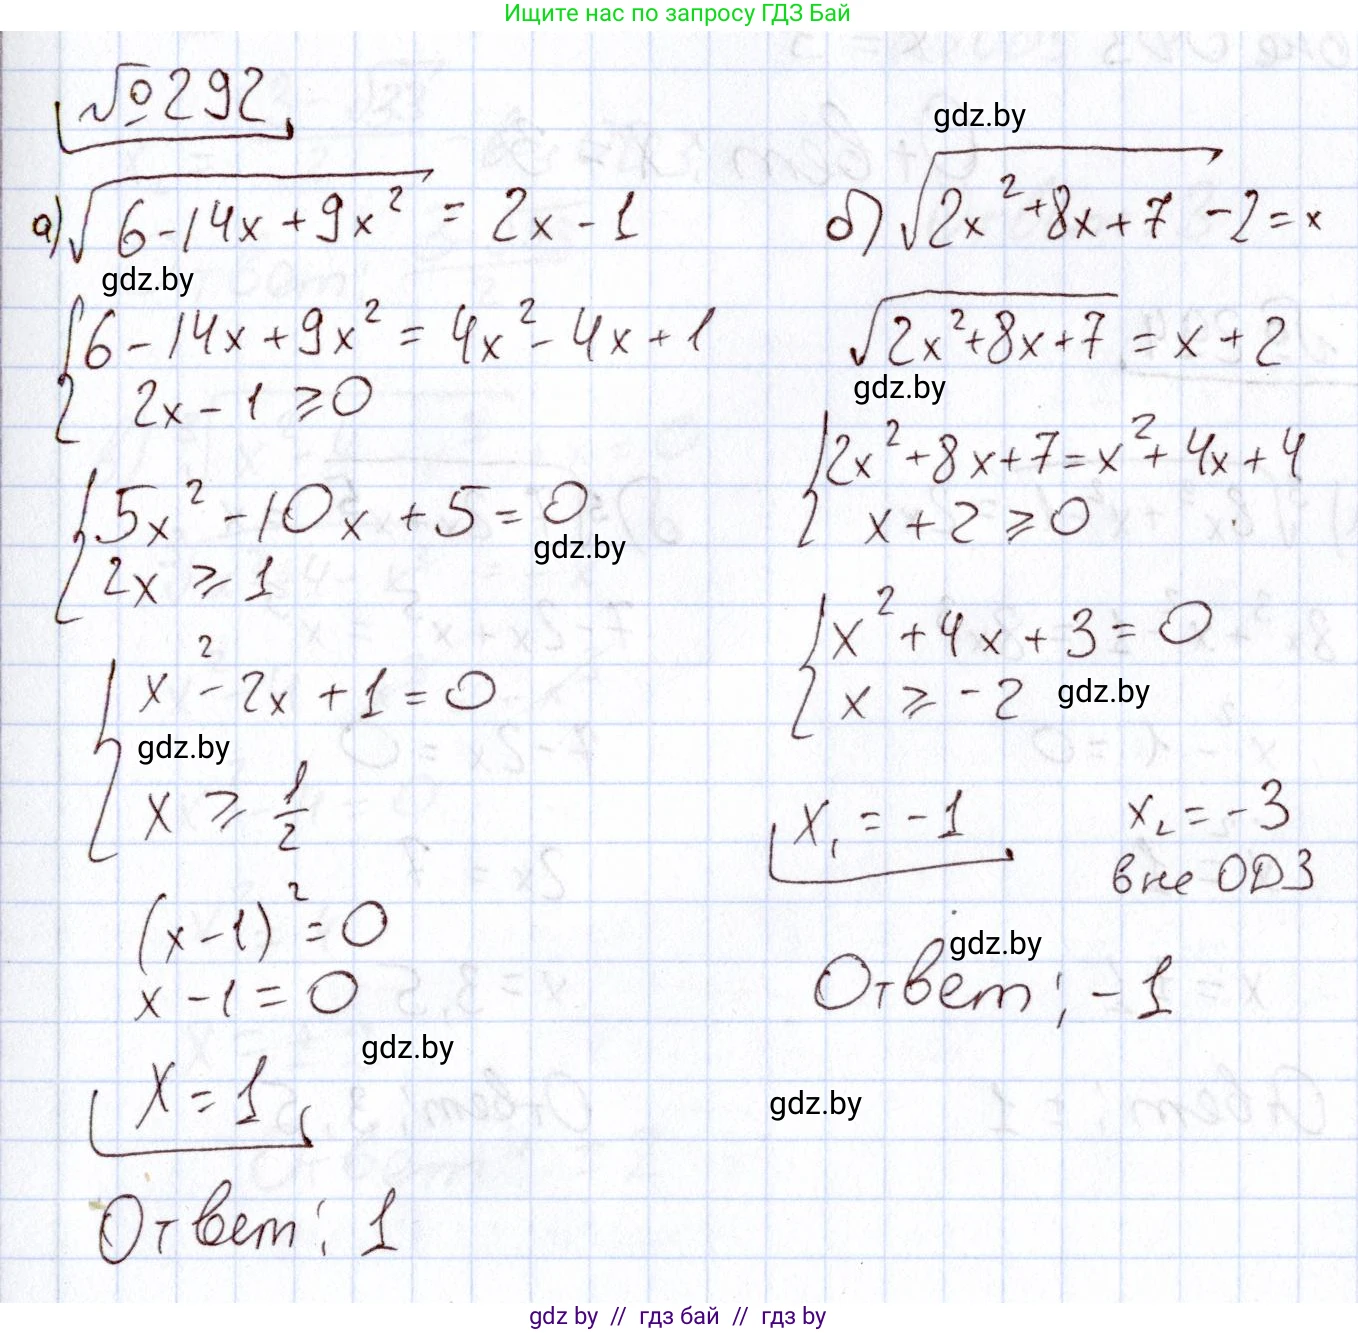 Ищите нас по запросу ГДЗ Бай
№292
а) √(6-14x+9x²) = 2x-1
gdz.by
{6-14x+9x² = 4x²-4x+1
2x-1 ⩾ 0
gdz.by
{5x²-10x+5=0
2x ⩾ 1
gdz.by
{x²-2x+1=0
gdz.by
x ⩾ 1/2
(x-1)²=0
x-1=0
gdz.by
x=1
Ответ: 1
gdz.by
б) √(2x²+8x+7) -2=x
√(2x²+8x+7) = x+2
gdz.by
{2x²+8x+7=x²+4x+4
x+2 ⩾ 0
{x²+4x+3=0
x ⩾ -2
gdz.by
x₁ = -1 x₂ = -3
вне ОДЗ
gdz.by
Ответ: -1
gdz.by
gdz by // гдз бай // гдз by